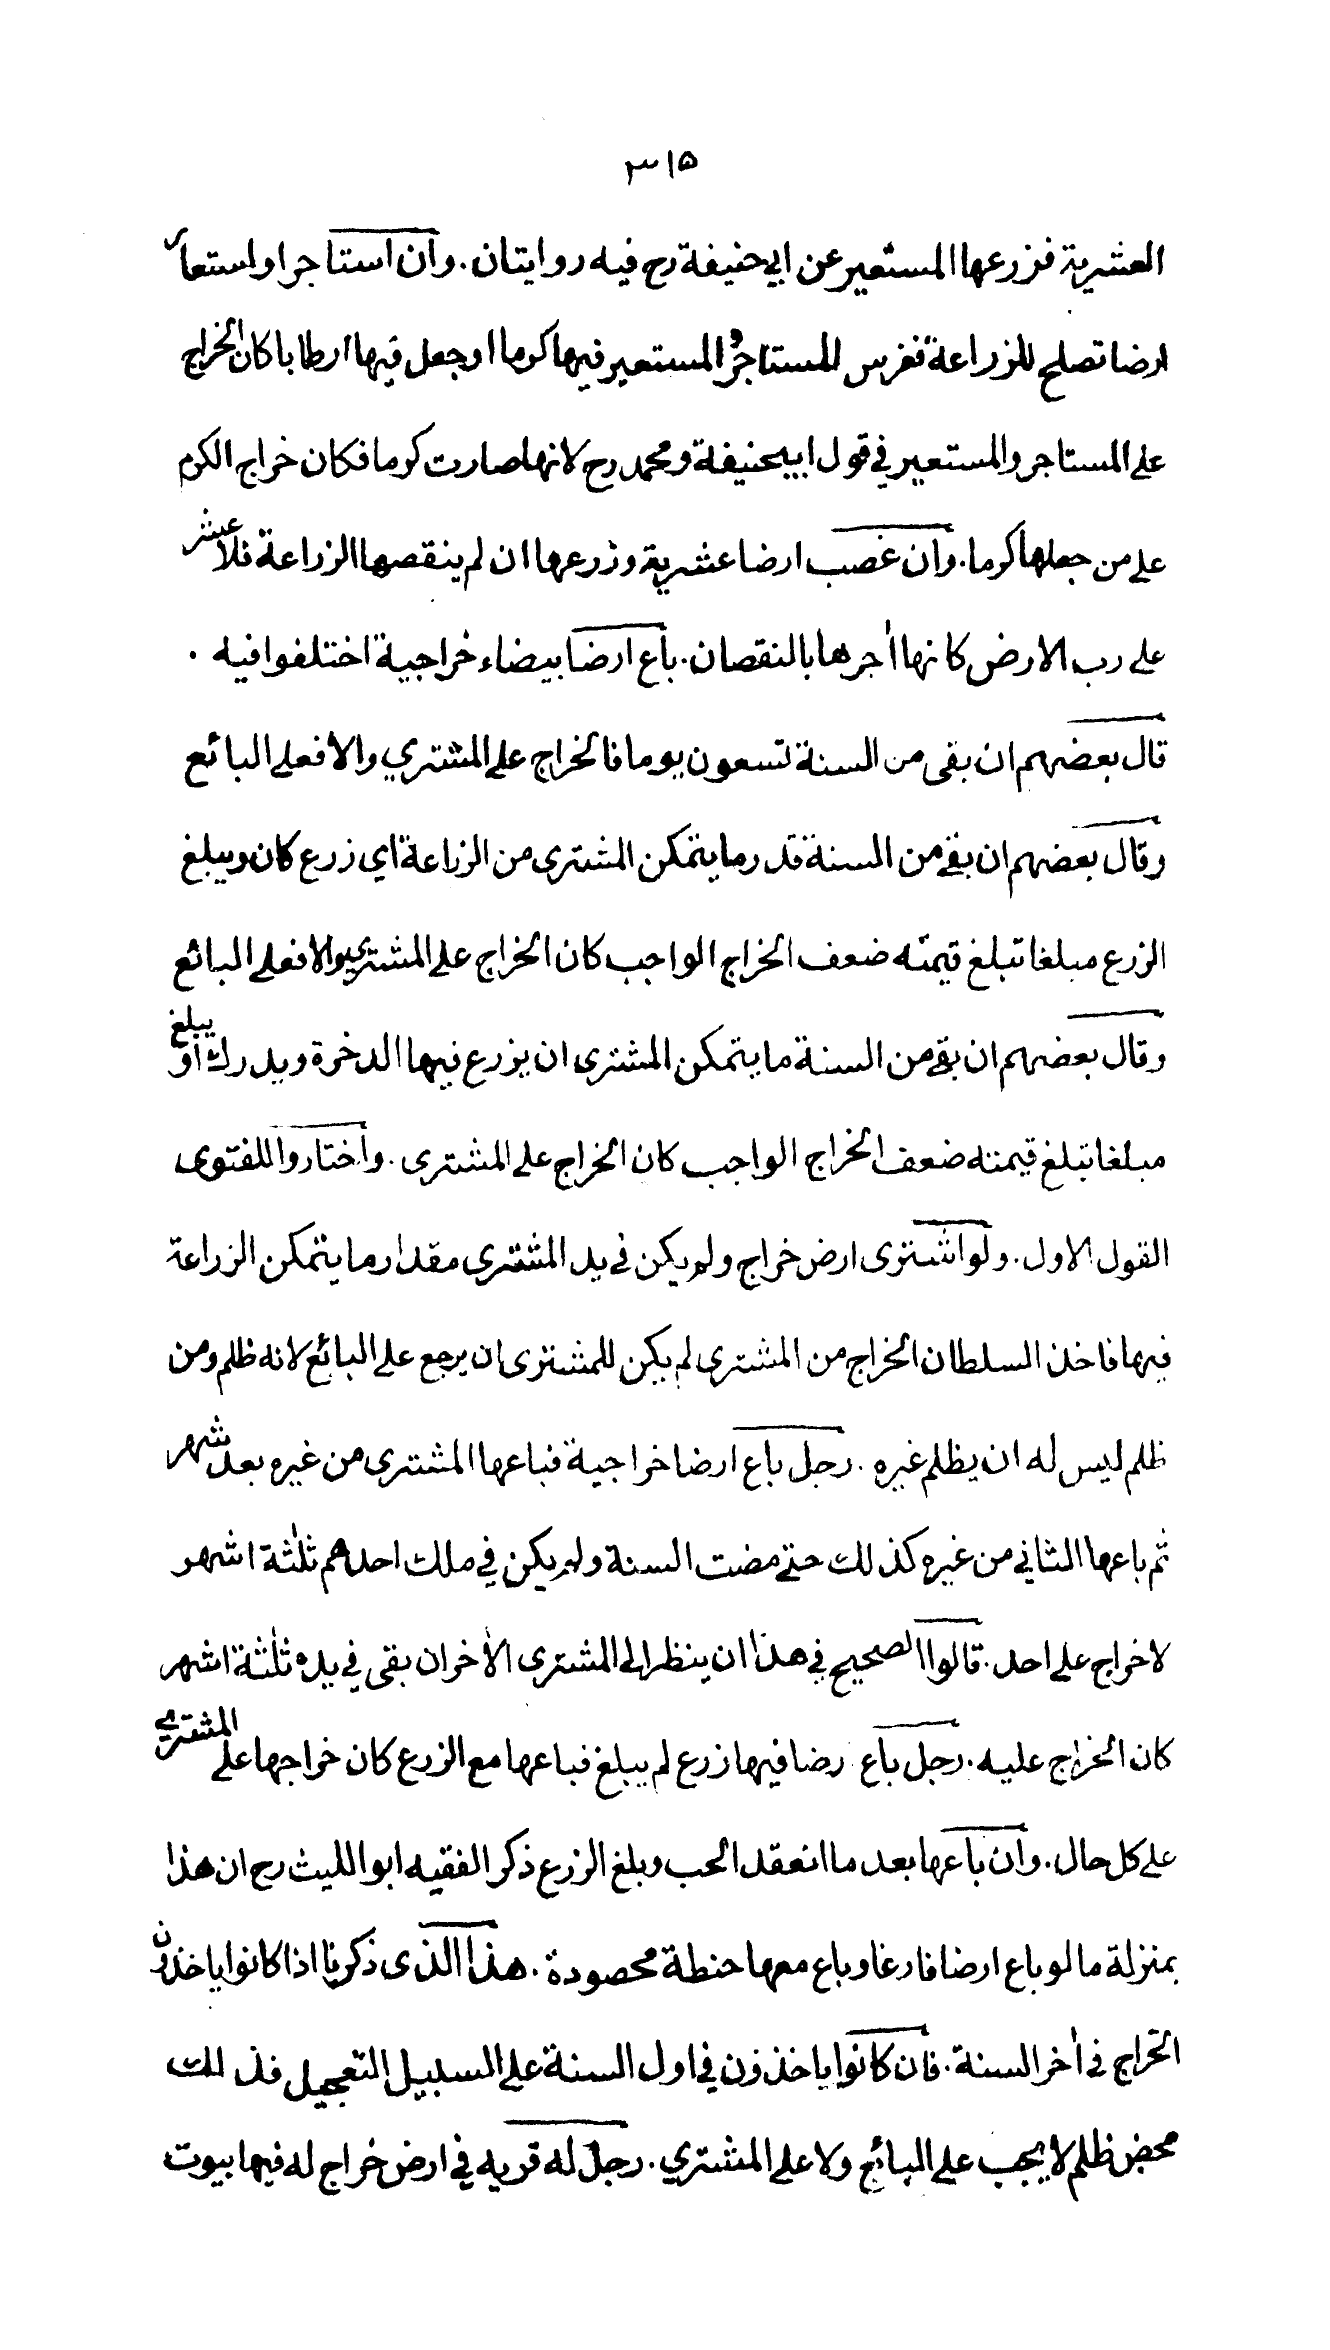 ٣١٥
العشرية فزرعها المستعير عن ابي حنيفة رح فيه روايتان. وان استاجر او استعار
ارضا تصلح للزراعة فغرس المستاجر والمستعير فيها كرما او جعل فيها ارطابا كان الخراج
على المستاجر والمستعير في قول ابيحنيفة ومحمد رح لانها صارت كرما فكان خراج الكرم
على من جعلها كرما. وان غصب ارضا عشرية وزرعها ان لم ينقصها الزراعة فلا عشر
على رب الارض كانها أجرها بالنقصان. باع ارضا بيضاء خراجية اختلفوا فيه .
قال بعضهم ان بقى من السنة تسعون يوما فالخراج على المشتري والا فعلى البائع
وقال بعضهم ان بقي من السنة قدر ما يتمكن المشترى من الزراعة اي زرع كان ويبلغ
الزرع مبلغا تبلغ قيمته ضعف الخراج الواجب كان الخراج على المشتري والا فعلى البائع
وقال بعضهم ان بقي من السنة ما يتمكن المشترى ان يزرع فيها الدخرة ويدرك او يبلغ
مبلغا تبلغ قيمته ضعف الخراج الواجب كان الخراج على المشترى. واختاروا للفتوى
القول الاول. ولو اشترى ارض خراج ولم يكن في يد المشترى مقدار ما يتمكن الزراعة
فيها فاخذ السلطان الخراج من المشترى لم يكن للمشترى ان يرجع على البائع لانه ظلم ومن
ظلم ليس له ان يظلم غيره . رجل باع ارضا خراجية فباعها المشترى من غيره بعد شهر
ثم باعها الثاني من غيره كذلك حتى مضت السنة ولم يكن في ملك احدهم ثلثة اشهر
لا خراج على احد. قالوا الصحيح في هذا ان ينظر الى المشترى الأخر ان بقى في يده ثلثة اشهر
كان الخراج عليه. رجل باع رضا فيها زرع لم يبلغ فباعها مع الزرع كان خراجها على المشترى
على كل حال. وان باعها بعد ما انعقد الحب وبلغ الزرع ذكر الفقيه ابو الليث رح ان هذا
بمنزلة ما لو باع ارضا فارغا وباع معها حنطة محصودة. هذا الذى ذكرنا اذا كانوا ياخذون
الخراج في أخر السنة. فان كانوا ياخذون في اول السنة على السبيل التعجيل فذلك
محض ظلم لا يجب على البائع ولا على المشتري. رجل له قريه في ارض خراج له فيها بيوت